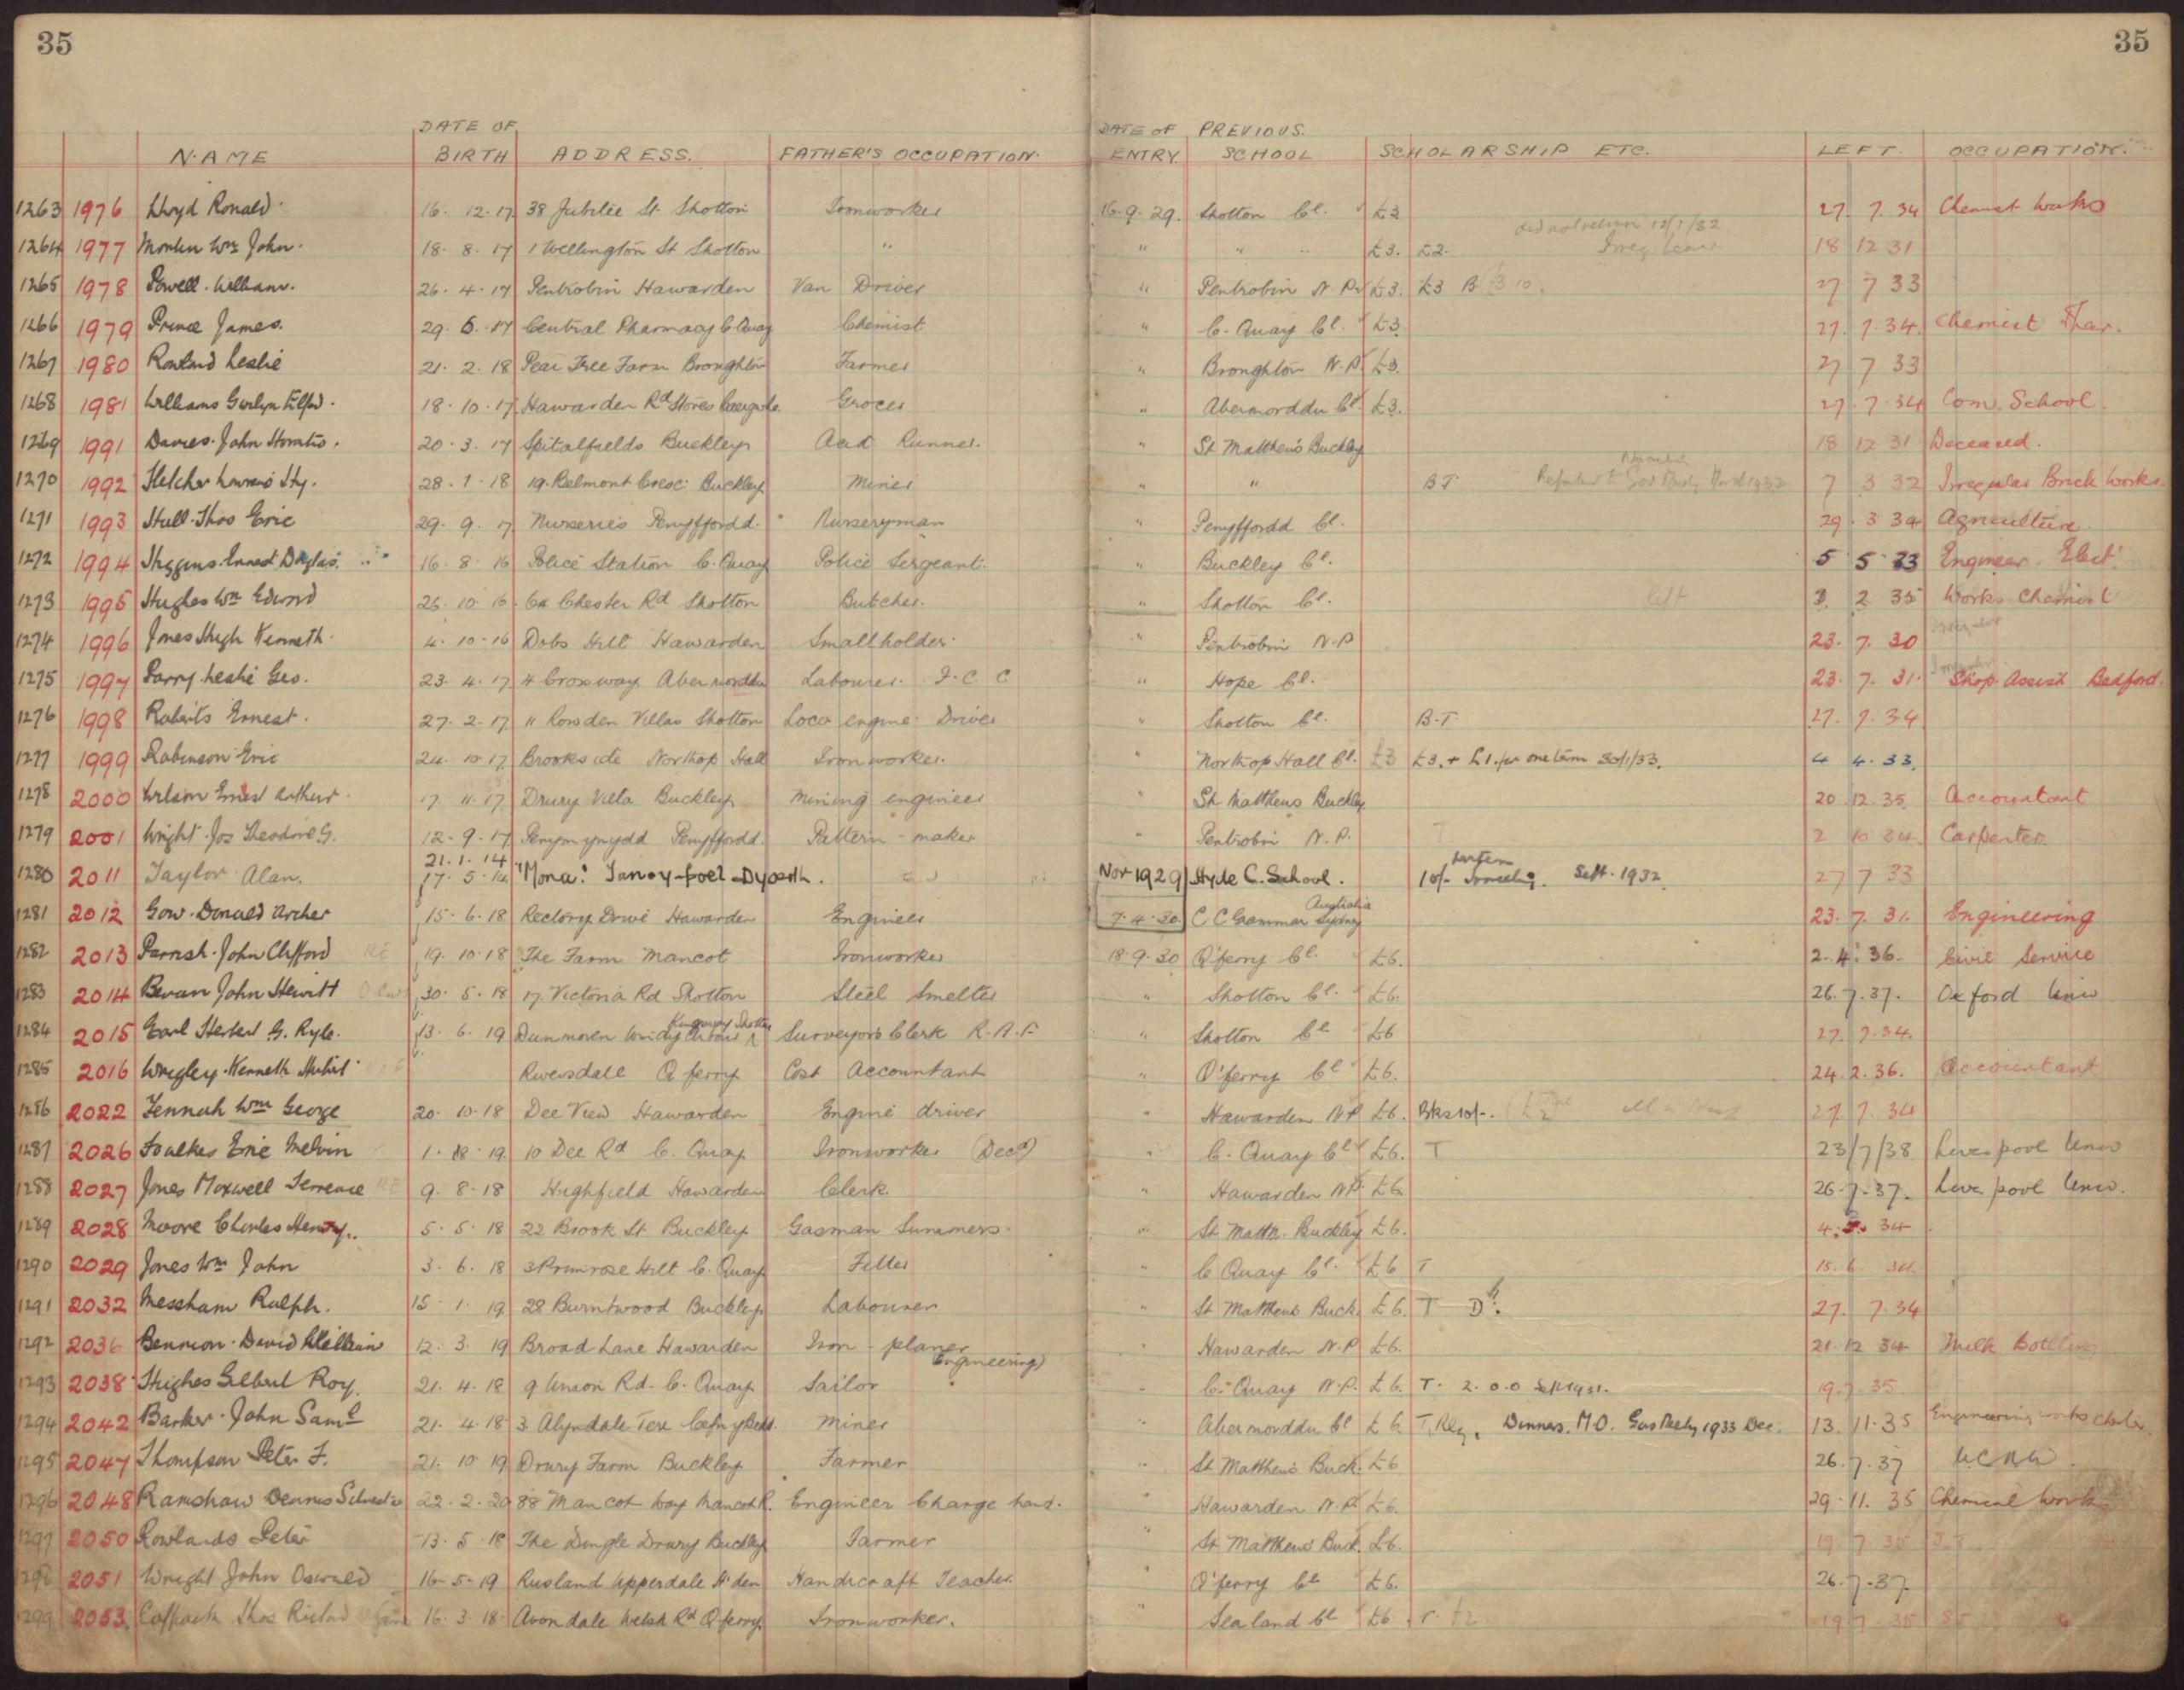 35 35
DATE OF DATE OF PREVIOUS.
NAME BIRTH ADDRESS. FATHER'S OCCUPATION. ENTRY SCHOOL SCHOLARSHIP ETC. LEFT. OCCUPATION.
1263 1976 Lloyd Ronald. 16. 12. 17 38 Jubilee St. Shotton Ironworker 16. 9. 29. Shotton Cl. £3 27. 7. 34 Chemist Works
did not return 12/1/32
1264 1977 Wm John. 18. 8. 17 1 Wellington St Shotton " " " " £3. £2. Irreg. 18 12 31
1265 1978 Powell. William. 26. 4. 17 Pentrobin Hawarden Van Driver " Pentrobin N.P. £3. £3 B. 27 7 33
1266 1979 Prince James. 29. 6. 17 Central Pharmacy C. Quay Chemist " C. Quay Cl. £3 27. 7. 34. Chemist Phar.
1267 1980 Rowland Leslie 21. 2. 18 Pear Tree Farm Broughton Farmer " Broughton N.P. £3. 27 7 33
1268 1981 Williams Gwilym 18. 10. 17 Hawarden Rd Stores Grocer " Abermorddu Cl. £3. 27. 7. 34 Com. School.
1269 1991 Davies. John Horatio. 20. 3. 17 Spitalfields Buckley Acid Runner. " St Matthew's Buckley 18 12 31 Deceased.
1270 1992 Fletcher Hy. 28. 1. 18 19. Belmont Cresc: Buckley Miner " " B T. 7 3 32 Irregular Brick Works.
1271 1993 Hull. Thos Eric 29. 9. 17 Nurseries Penyffordd. Nurseryman " Penyffordd Cl. 29. 3 34 Agriculture
1272 1994 Higgins. Ernest Douglas. 16. 8. 16 Police Station C. Quay Police Sergeant. " Buckley Cl. 5 5 33 Engineer. Elect.
1273 1995 Hughes Wm Edward 26. 10. 16 Chester Rd Shotton Butcher. " Shotton Cl. left 3 2 35 Works Chemist
1274 1996 Jones Hugh Kenneth. 4. 10. 16 Dobs Hill Hawarden Smallholder. " Pentrobin N.P 23. 7. 30
1275 1997 Parry. Leslie Geo. 23. 4. 17 4 Crossway Abermorddu Labourer. F. C. C " Hope Cl. 23. 7. 31. Shop Assist Bedford.
1276 1998 Roberts Ernest. 27. 2. 17 11 Rowden Villas Shotton Loco engine Driver " Shotton Cl. B. T. 27. 7. 34
1277 1999 Robinson Eric 24. 10. 17 Brookside Northop Hall Ironworker. " Northop Hall Cl. £3 £3. + £1. for one term 30/1/33. 4 4. 33.
1278 2000 Wilson Ernest Arthur. 17. 11. 17 Drury Villa Buckley Mining engineer " St Matthews Buckley 20. 12. 35. Accountant
1279 2001 Wright. Jos Theodore G. 12. 9. 17 Penymynydd Penyffordd. Pattern-maker " Pentrobin N.P. T 2 10 34. Carpenter.
21. 1. 14
1280 2011 Taylor Alan. 17. 5. 14 "Mona". Dyserth. Nov 1929 Hyde C. School. 10/- Sept. 1932. 27 7 33
Australia
1281 2012 Gow. Donald Archer 15. 6. 18 Rectory Drive Hawarden Engineer 7. 4. 30. C. C Grammar Sydney 23. 7. 31. Engineering
1282 2013 Parrish. John Clifford RE 19. 10. 18 The Farm Mancot Ironworker 18. 9. 30 Q'ferry Cl. £6. 2. 4. 36. Civil Service
1283 2014 Bevan John Hewitt 30. 5. 18 17. Victoria Rd Shotton Steel Smelter " Shotton Cl. £6. 26. 7. 37. Oxford Univ
1284 2015 Earl Herbert G. Ryle. 13. 6. 19 Surveyor's Clerk R.A.F. " Shotton Cl £6 27. 7. 34.
1285 2016 Wrigley. Kenneth Hubert Riversdale Q ferry Cost Accountant " Q'ferry Cl £6. 24. 2. 36. Accountant
1286 2022 Tennah Wm George 20. 10. 18 Dee View Hawarden Engine driver " Hawarden N.P £6. Bks 10/-. 27. 7. 34
1287 2026 Foulkes Eric Melvin 10 Dee Rd C. Quay Ironworker (Decd) " C. Quay Cl £6. T 23/7/38 Liverpool Univ
1288 2027 Jones Maxwell Terrence RE 9. 8. 18 Highfield Hawarden Clerk. " Hawarden N.P. £6 26. 7. 37. Liverpool Univ.
1289 2028 Moore Charles Henry. 5. 5. 18 22 Brook St Buckley Gasman Summers. " St Matth. Buckley £6. 34
1290 2029 Jones Wm John 3. 6. 18 3 Primrose Hill C. Quay Fitter " C Quay Cl. £6 T 15. 6. 34.
1291 2032 Messham Ralph. 15. 1. 19 28 Burntwood Buckley Labourer " St Matthews Buck. £6. T D. 27. 7. 34
1292 2036 Bennion. David William 12. 3. 19 Broad Lane Hawarden Iron-planer " Hawarden N.P £6. 21. 12 34 Milk Bottling
Engineering)
1293 2038 Hughes Gilbert Roy. 21. 4. 18 9 Union Rd. C. Quay Sailor " C. Quay N.P. £6. T. 2. 0. 0 Sept 1931. 19. 7. 35
1294 2042 Barker. John Saml 21. 4. 18 3. Alyndale Terr Cefn y Bedd. Miner " Abermorddu Cl £6 T. Dinners. M.O. 1933 Dec. 13. 11. 35 Engineering works
1295 2047 Thompson Peter F. 21. 10 19 Drury Farm Buckley Farmer " St Matthew's Buck. £6 26. 7. 37 U.C.N.W.
1296 2048 Ramshaw Dennis 22. 2. 20 88 Mancot Way Mancot R. Engineer Charge hand. " Hawarden N.P. £6. 29. 11. 35 Chemical Works
1297 2050 Rowlands Peter 13. 5. 18 The Dingle Drury Buckley Farmer " St Matthews Buck. £6. 19. 7 35
1298 2051 Wright John Oswald 16-5-19 Rusland Upperdale H'den Handicraft Teacher. " Q'ferry Cl £6. 26. 7. 37.
1299 2053 Thos Richard 16. 3. 18. Avondale Welsh Rd Q. ferry. Ironworker. " Sealand Cl £6. T. £2 19 7. 35